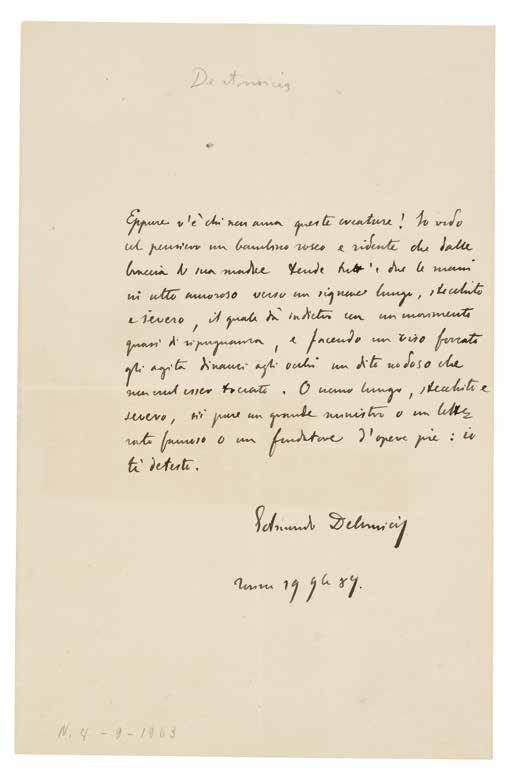 De Amicis
Eppure v'è chi non ama queste creature! Io vedo
col pensiero un bambino roseo e ridente che dalle
braccia di sua madre tende tutt'e due le mani
in atto amoroso verso un signore lungo, stecchito
e severo, il quale dà indietro con un movimento
quasi di ripugnanza, e facendo un viso forzato
gli agita dinanzi agli occhi un dito nodoso che
non vuol esser toccato. O uomo lungo, stecchito e
severo, sii pure un grande ministro o un lette
rato famoso o un fondatore d'opere pie: io
ti detesto.
Edmondo DeAmicis
19 9b 89.
N. 4-9-1963